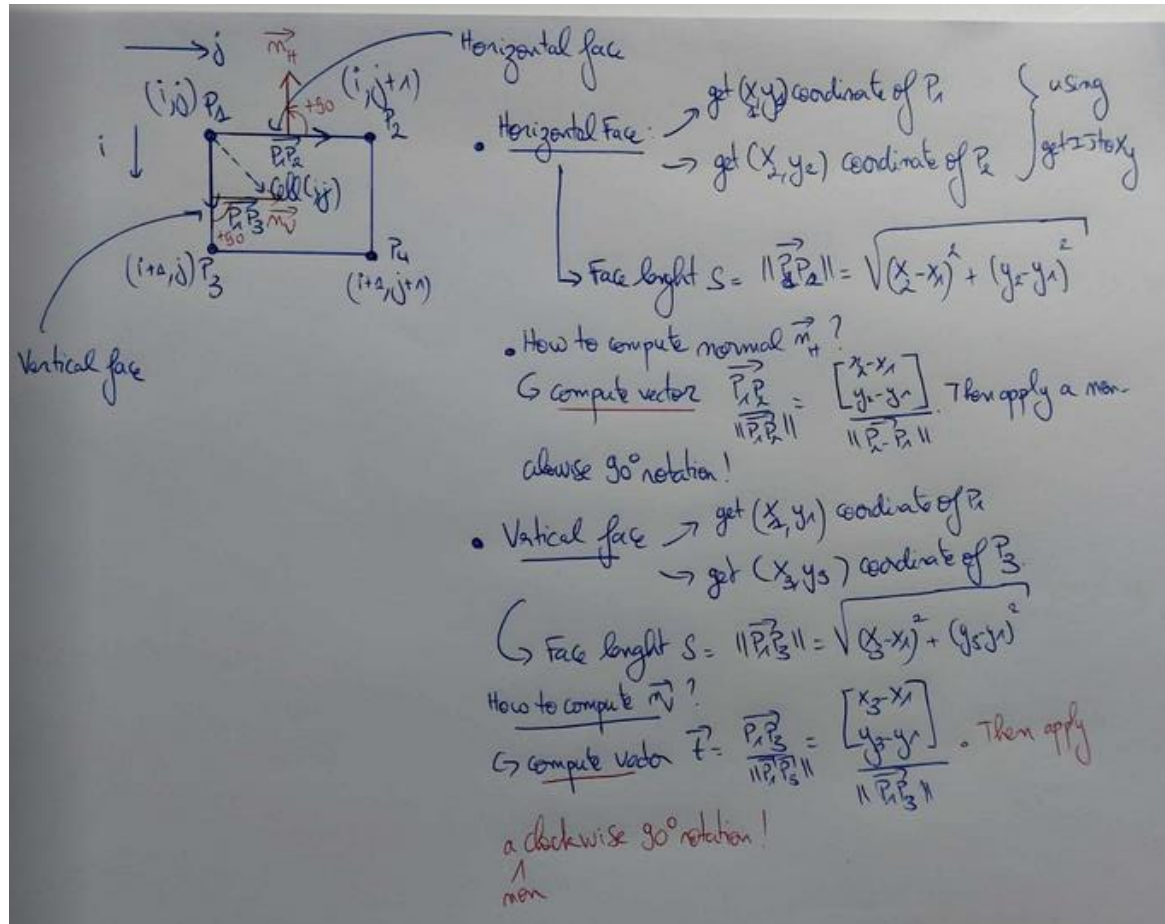 → j
n⃗_H
Horizontal face
(i,j) P1
+90
(i,j+1)
P2
i ↓
P1P2
Cell(i,j)
P1P3 n⃗_V
+90
(i+1,j) P3
P4
(i+1,j+1)
Vertical face
• Horizontal Face: → get (x1,y1) coordinate of P1
→ get (x2,y2) coordinate of P2
} using
getIJtoXY
↳ Face lenght S = ||P1P2|| = √((x2-x1)² + (y2-y1)²)
• How to compute normal n⃗_H ?
↳ compute vector P1P2 / ||P1P2|| = [x2-x1 y2-y1] / ||P2-P1|| . Then apply a non-
clowise 90° rotation!
• Vertical face → get (x1,y1) coordinate of P1
→ get (x3,y3) coordinate of P3.
↳ Face lenght S = ||P1P3|| = √((x3-x1)² + (y3-y1)²)
How to compute n⃗_V ?
↳ compute vector t⃗ = P1P3 / ||P1P3|| = [x3-x1 y3-y1] / ||P1P3|| . Then apply
a clockwise 90° rotation!
non